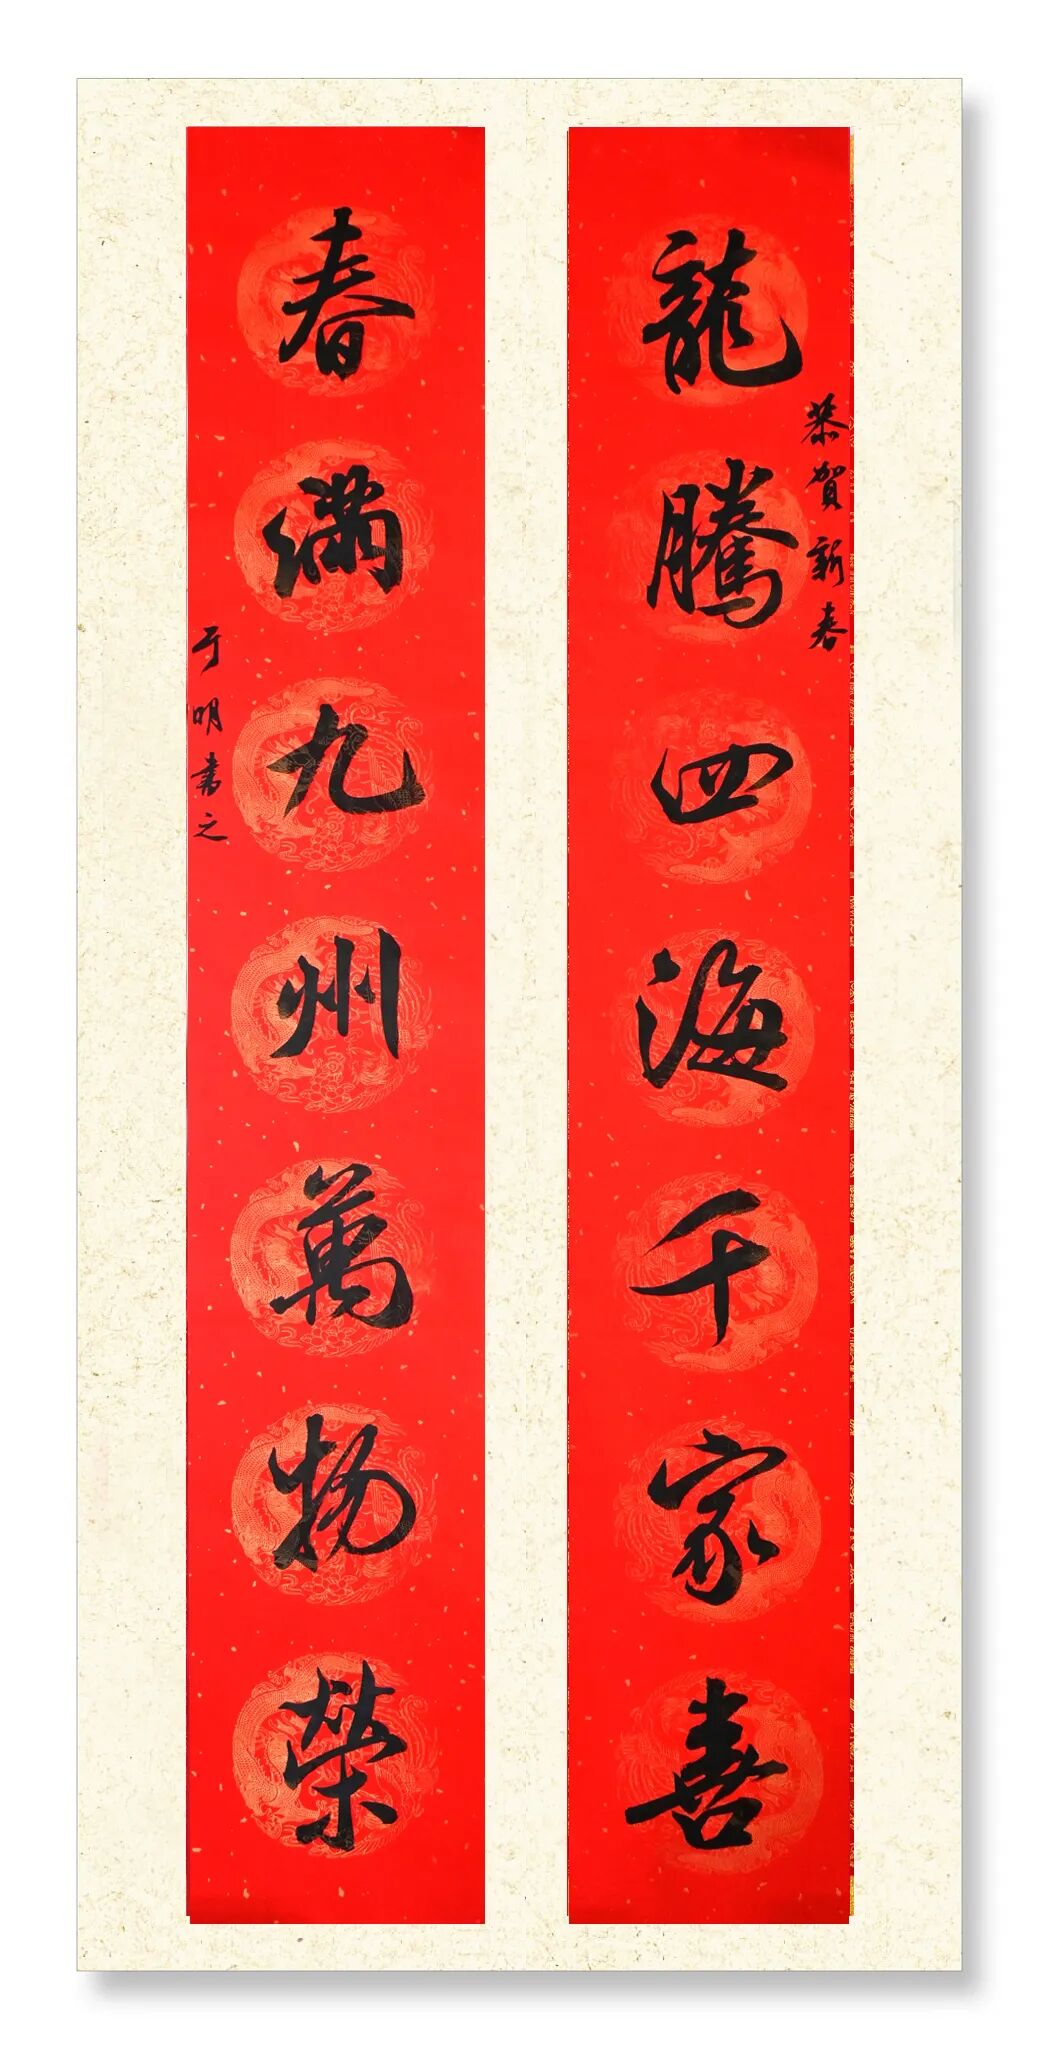 恭賀新春
龍騰四海千家喜
春滿九州萬物榮
于明書之